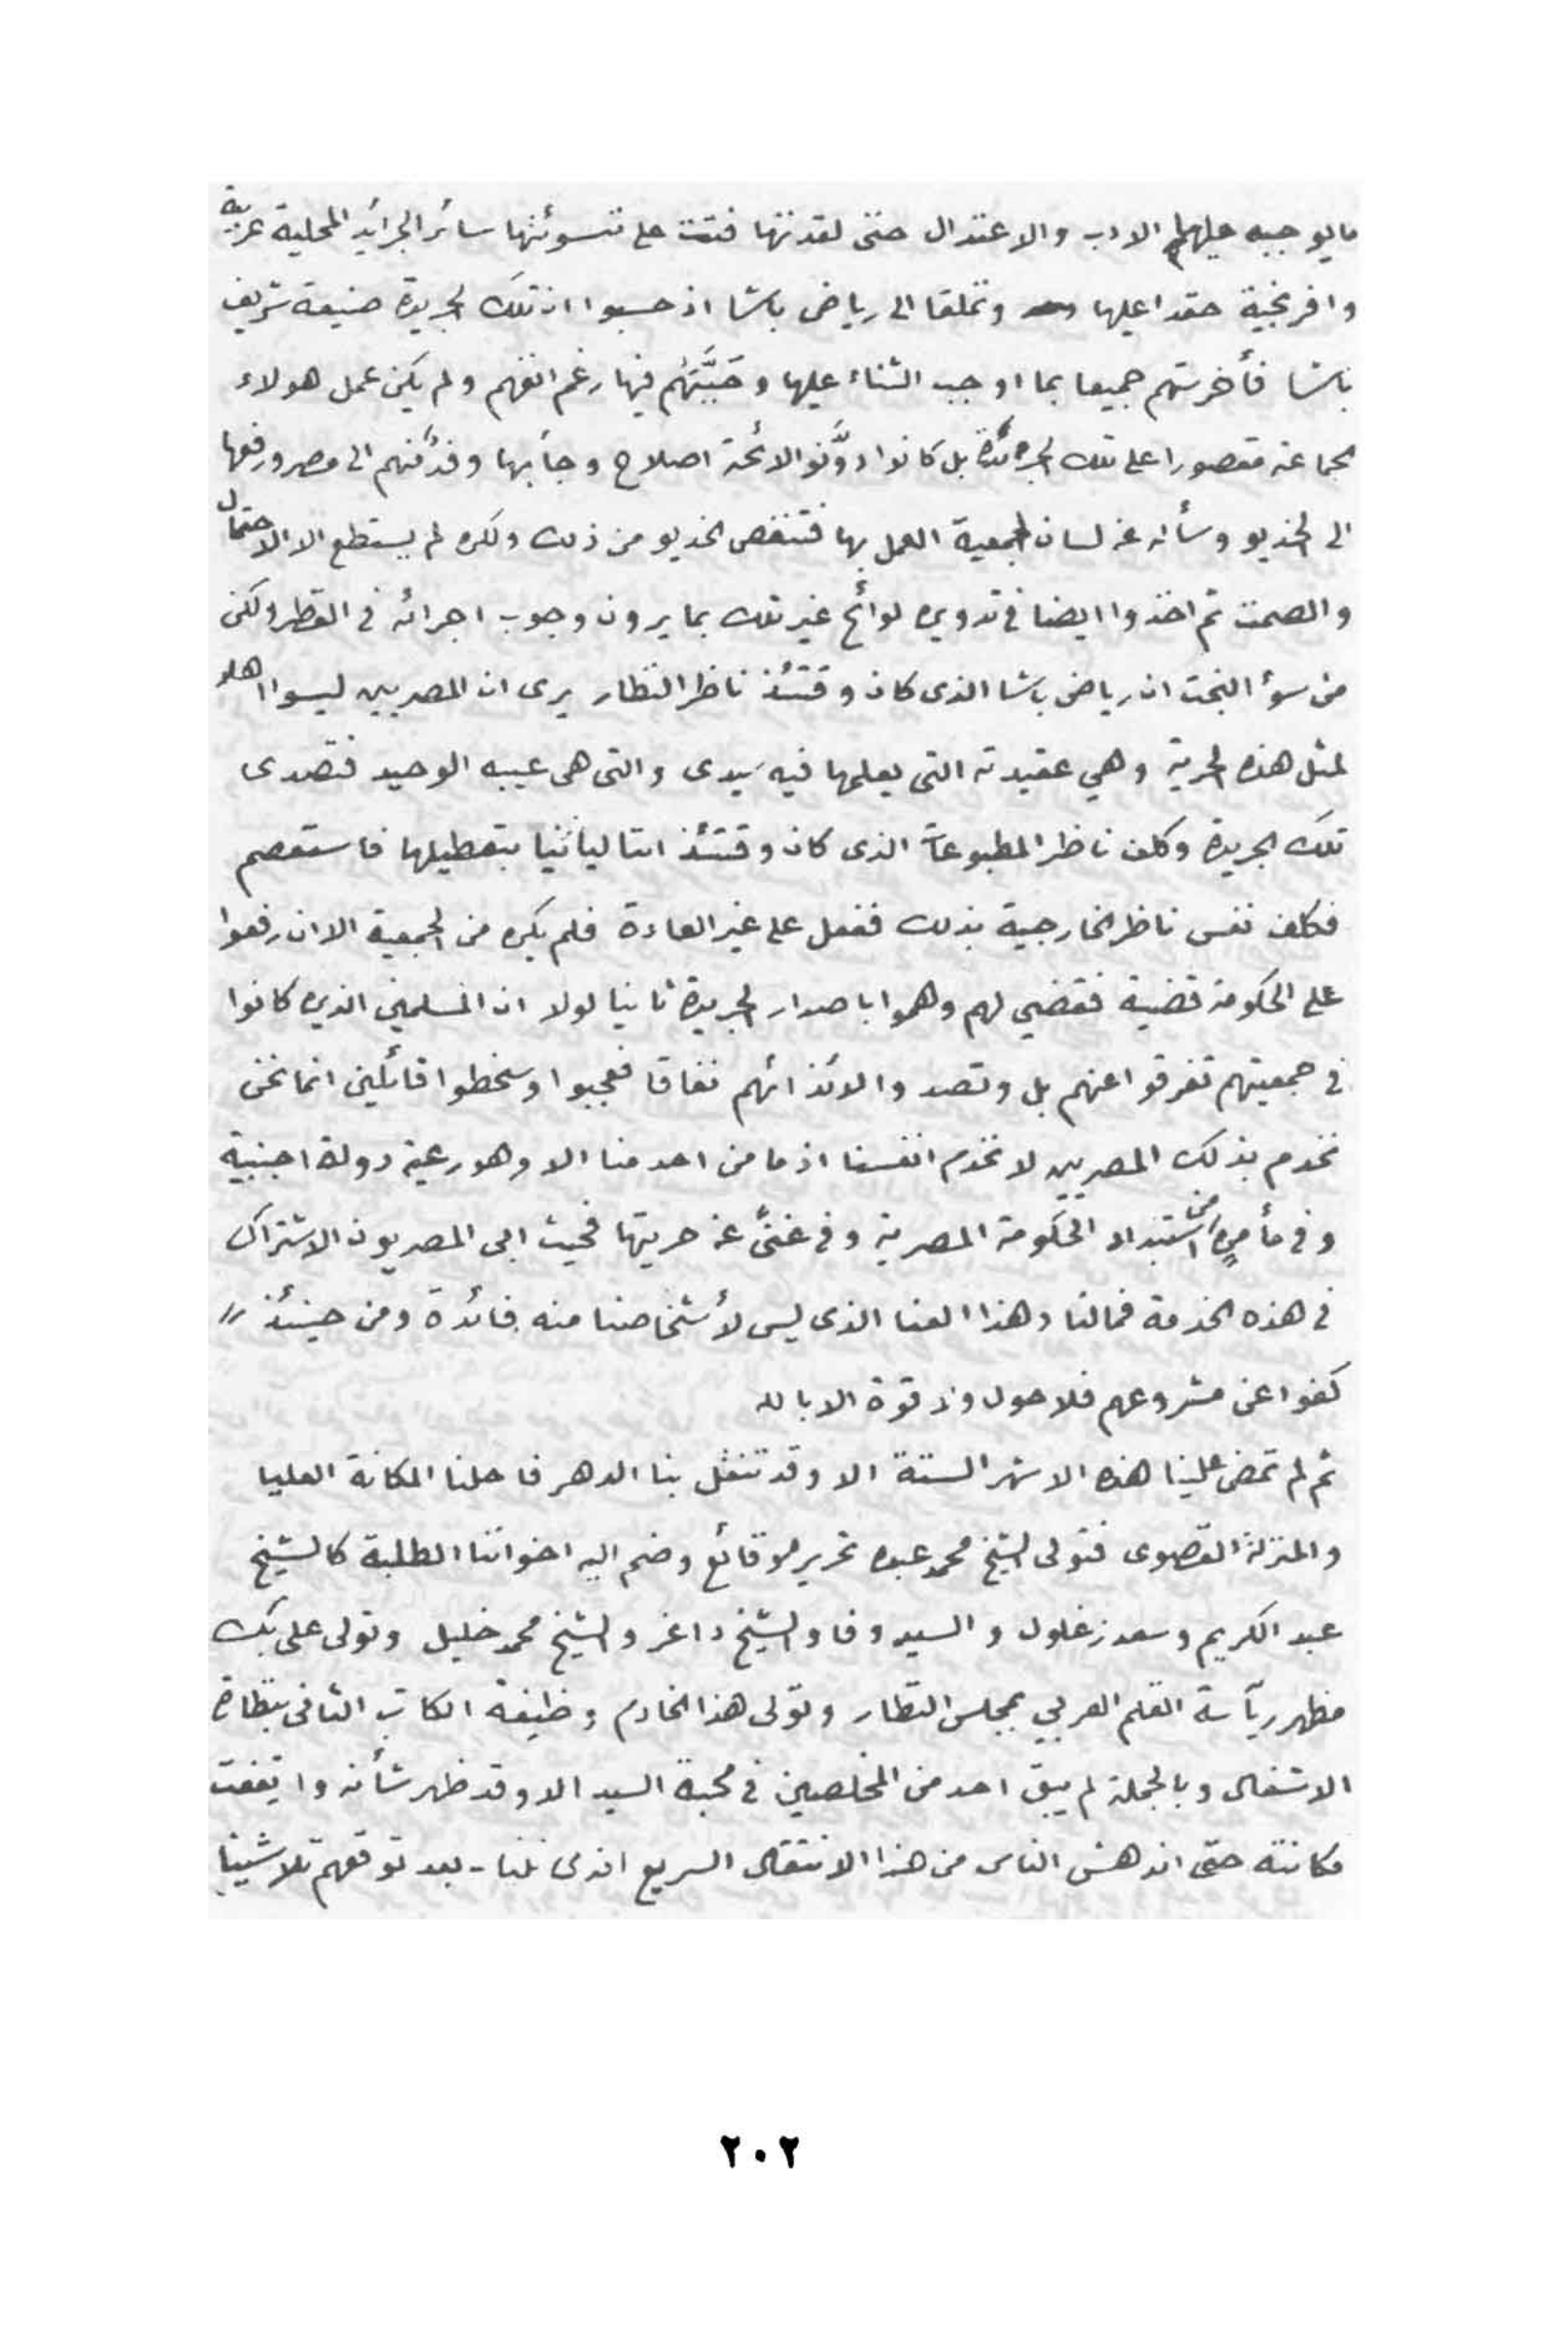 ما يوجبه عليها الادب والاعتدال حتى لقد تسوئتها سائر الجرائد المحلية عربية
وافرنجية حقدا عليها وتملقا الى رياض باشا اذ حسبوا ان تلك الجريدة صنيعة شريف
باشا فأخرستهم جميعا بما اوجب الثناء عليها وحَبَّبَتْهُم فيها رغم انفهم ولم يكن عمل هولاء
الجماعة مقصورا على تلك الجريدة بل كانوا دوَّنوا لائحة اصلاح وجاء بها الى مصر ورفعها
الى الخديو وسأله عن لسان الجمعية العمل بها فتنغص الخديو من ذلك ولكن لم يستطع الا الاحتمال
والصمت ثم اخذوا ايضا فى تدوين لوائح غير تلك بما يرون وجوب اجرائه فى القطر ولكن
من سوء البخت ان رياض باشا الذى كان وقتئذ ناظر النظار يرى ان المصريين ليسوا اهلا
لمثل هذه الحرية وهي عقيدته التى يعلمها فيه سيدى والتى هى عيبه الوحيد فتصدى
تلك الجريدة وكلف ناظر المطبوعات الذى كان وقتئذ ايتاليانيا بتعطيلها فاستعصم
فكلف نفس ناظر الخارجية بذلك ففعل على غير العادة فلم يكن من الجمعية الا ان رفعوا
على الحكومة قضية فقضي لهم وهموا باصدار الجريدة ثانيا لولا ان المسلمين الذين كانوا
فى جمعيتهم تفرقوا عنهم بل وتصدوا لائذائهم نفاقا فعجبوا وسخطوا قائلين انما نحن
نخدم بذلك المصريين لا نخدم انفسنا اذ ما من احد منا الا وهو رعية دولة اجنبية
وفى مأمن من استبداد الحكومة المصرية وفى غنىً عن حريتها فحيث ابى المصريون الاشتراك
فى هذه الخدمة فمالنا وهذا العنا الذى ليس لأشخاصنا منه فائدة ومن حينئذ //
كفوا عن مشروعهم فلا حول ولا قوة الا بالله
ثم لم تمض علينا هذه الاشهر الستة الا وقد تنقل بنا الدهر فاحلنا المكانة العليا
والمنزلة القصوى فتولى الشيخ محمد عبده تحرير الوقائع وضم اليه اخواننا الطلبة كالشيخ
عبد الكريم وسعد زغلول والسيد وفا والشيخ داغر والشيخ محمد خليل وتولى على بك
مظهر ريآسة القلم العربي بمجلس النظار وتولى هذا الخادم وظيفة الكاتب الثانى بنظارة
الاشغال وبالجملة لم يبق احد من المخلصين فى محبة السيد الا وقد ظهر شأنه وارتفعت
مكانته حتى اندهش الناس من هذا الانتقال السريع الذى نلنا - بعد توقعهم تلاشينا
٢٠٢